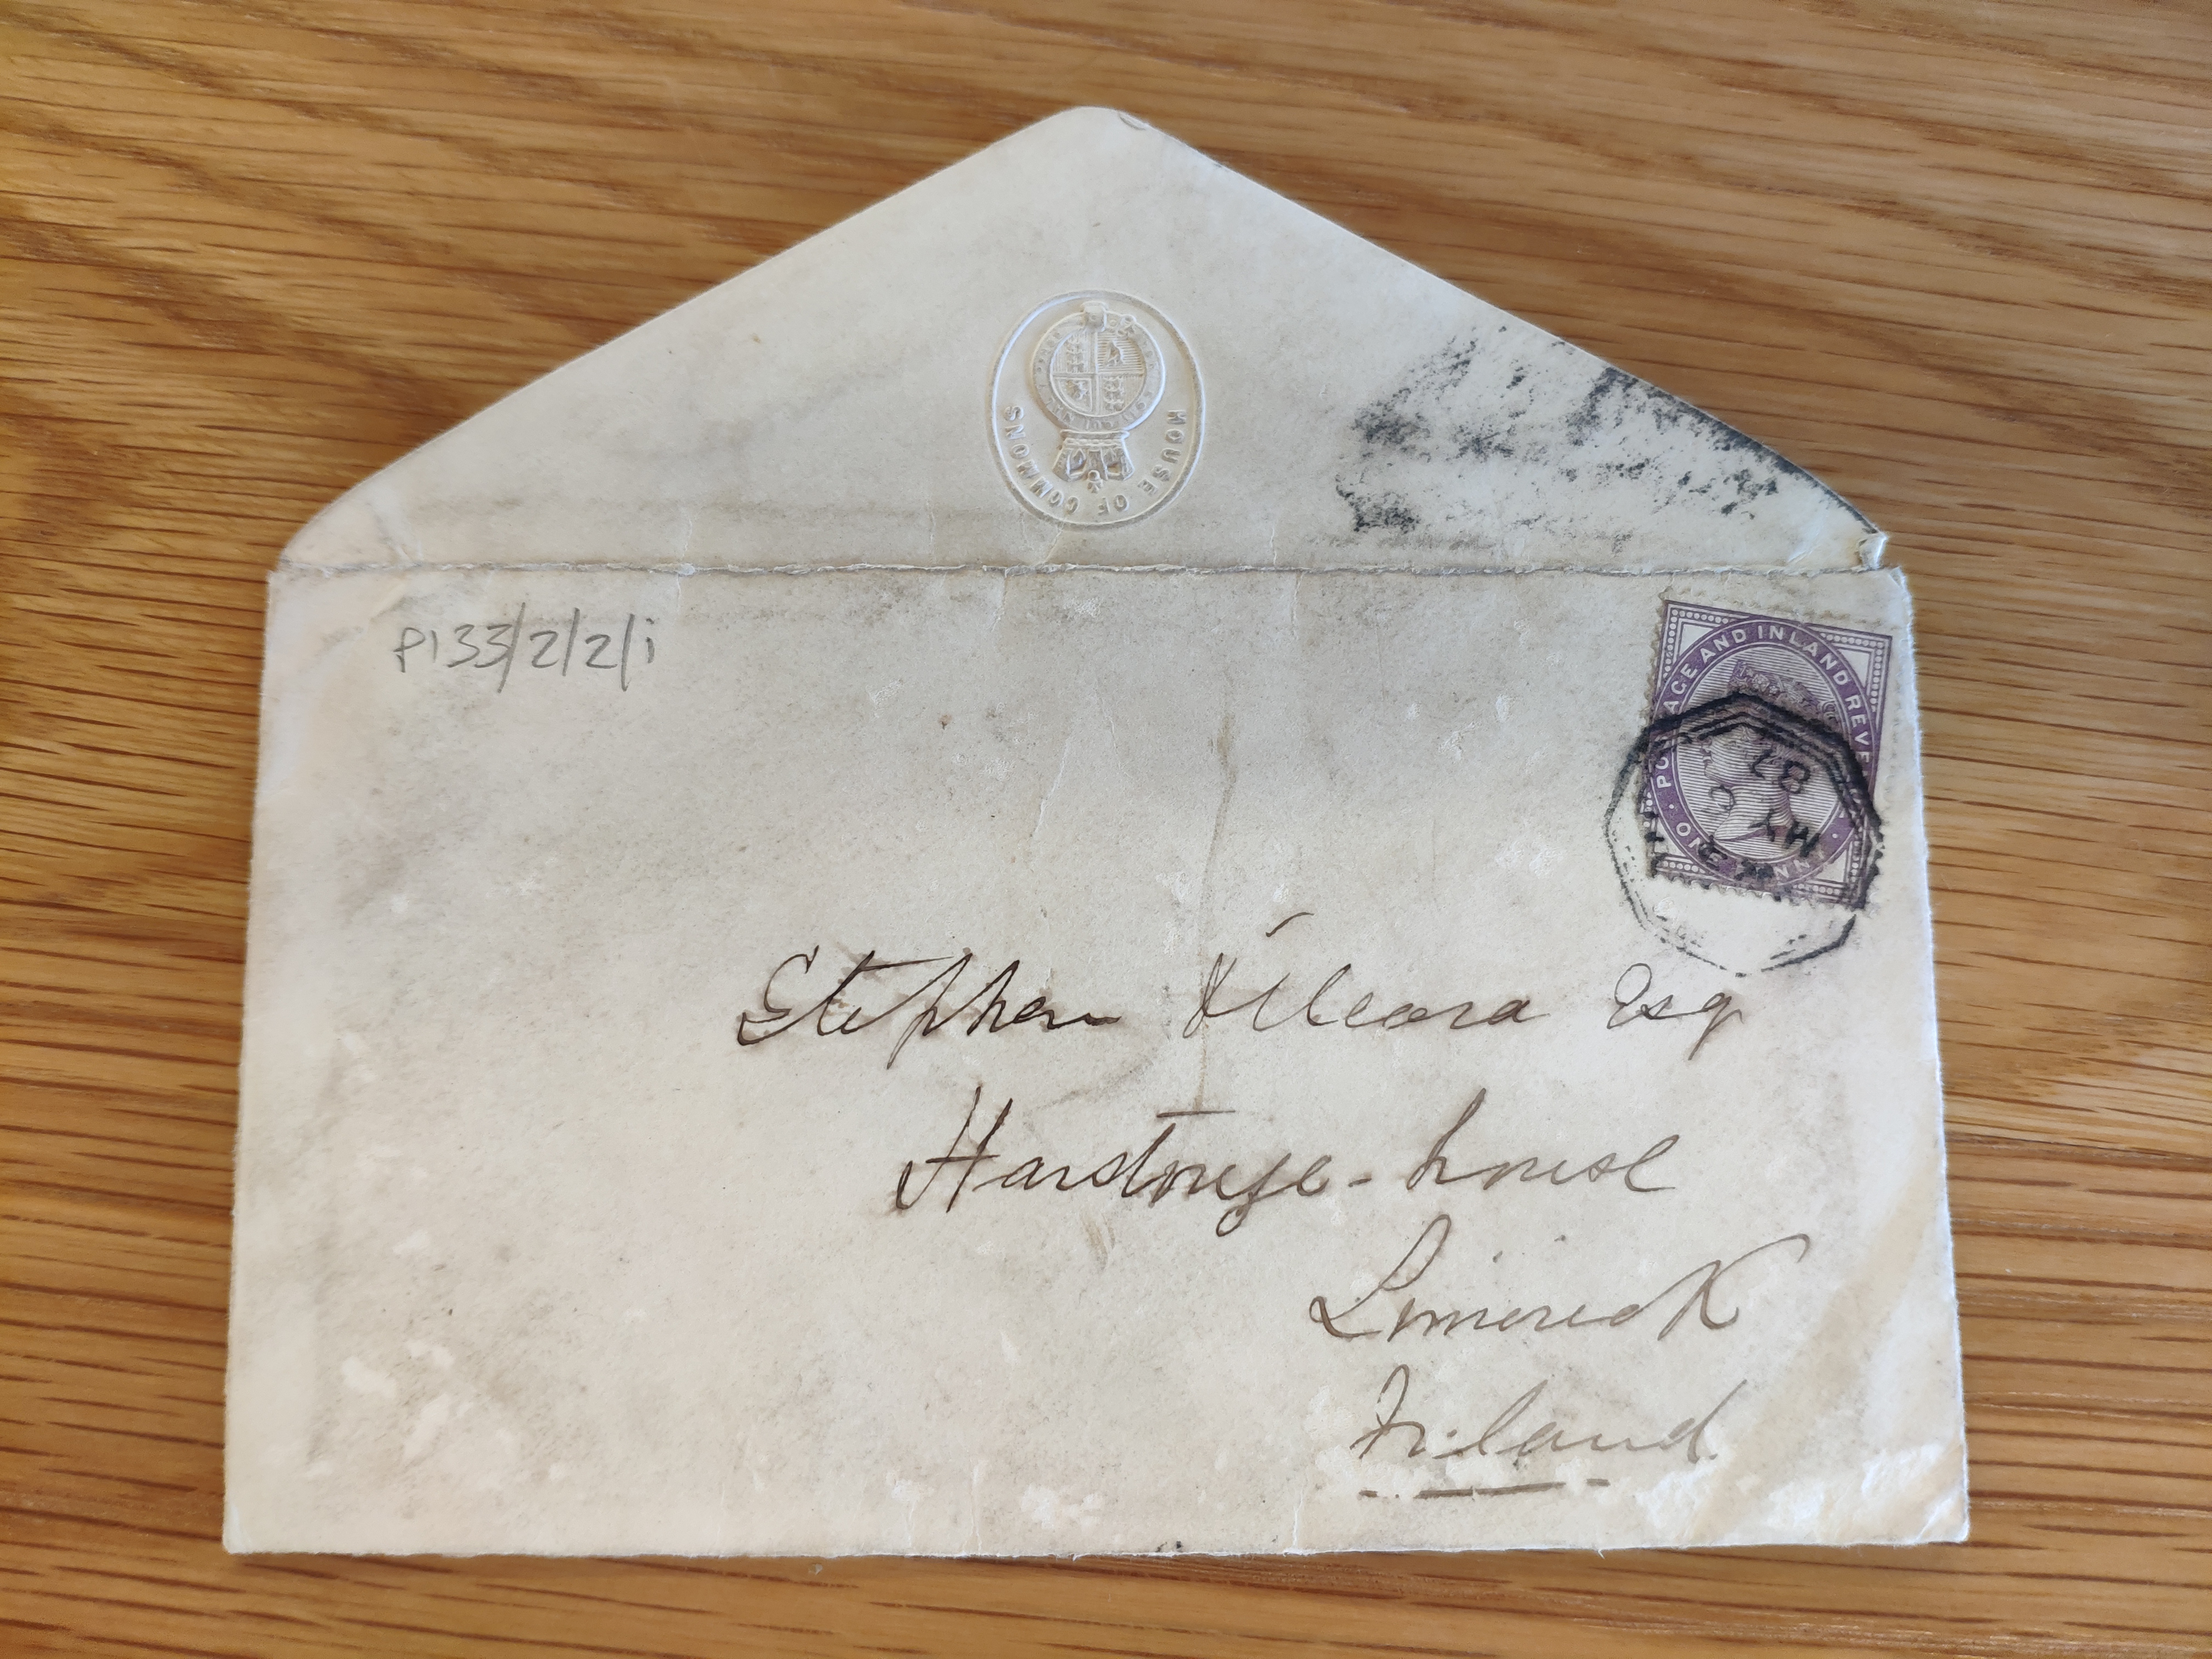 HOUSE OF COMMONS
P133/2/2/i
POSTAGE AND INLAND REVE
ONE PENNY
MY
87
Stephen O'Meara Esq
Hartstonge-house
Limerick
Ireland